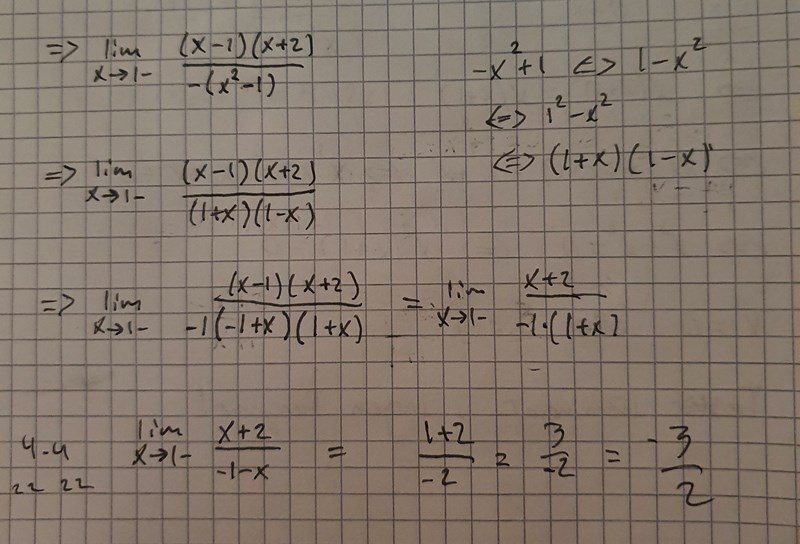 => lim x→1- (x-1)(x+2) / -(x²-1)
-x²+1 <=> 1-x²
<=> 1²-x²
<=> (1+x)(1-x)
=> lim x→1- (x-1)(x+2) / (1+x)(1-x)
=> lim x→1- (x-1)(x+2) / -1(-1+x)(1+x) = lim x→1- x+2 / -1·(1+x)
lim x→1- x+2 / -1-x = 1+2 / -2 = 3 / -2 = -3 / 2
22 22